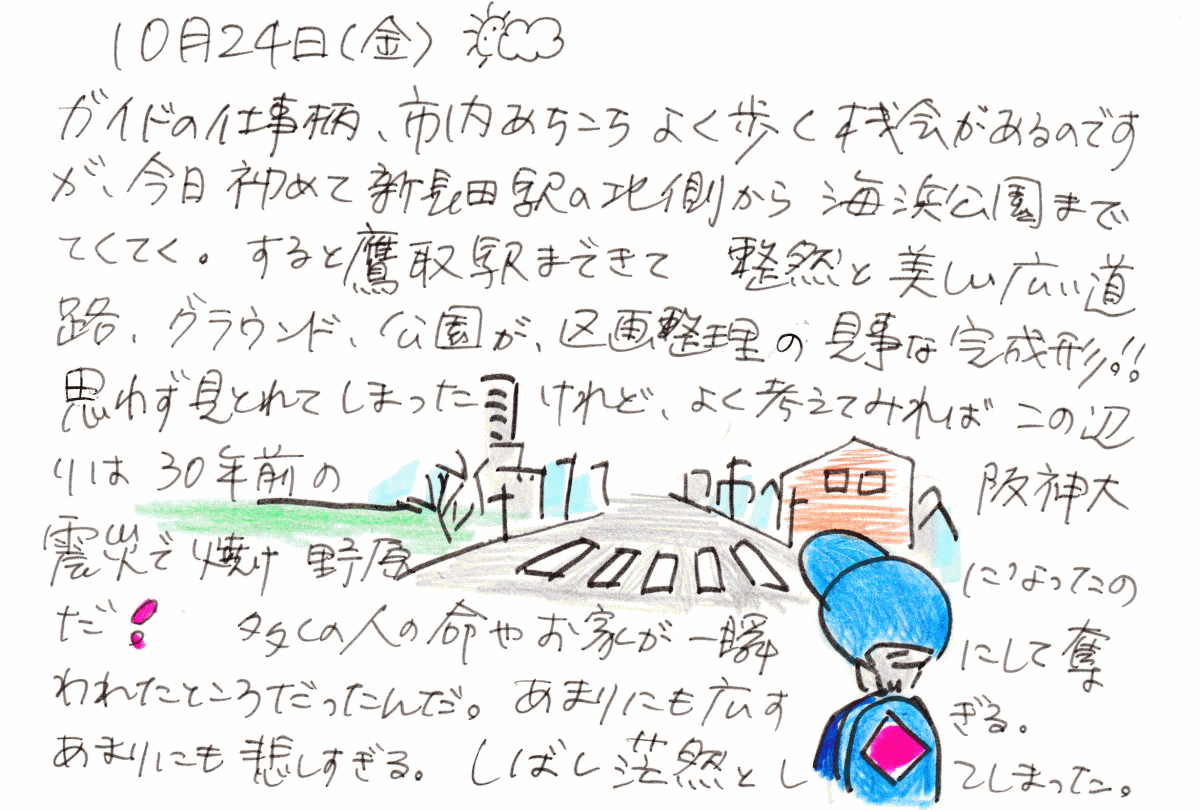 10月24日(金)
ガイドの仕事柄、市内あちこちよく歩く機会があるのです
が、今日初めて新長田駅の北側から海浜公園まで
てくてく。すると鷹取駅まできて整然と美しい広い道
路、グラウンド、公園が、区画整理の見事な完成形!!
思わず見とれてしまったけれど、よく考えてみればこの辺
りは30年前の阪神大
震災で焼け野原になったの
だ! 多くの人の命やお家が一瞬にして奪
われたところだったんだ。あまりにも広すぎる。
あまりにも悲しすぎる。しばし茫然としてしまった。